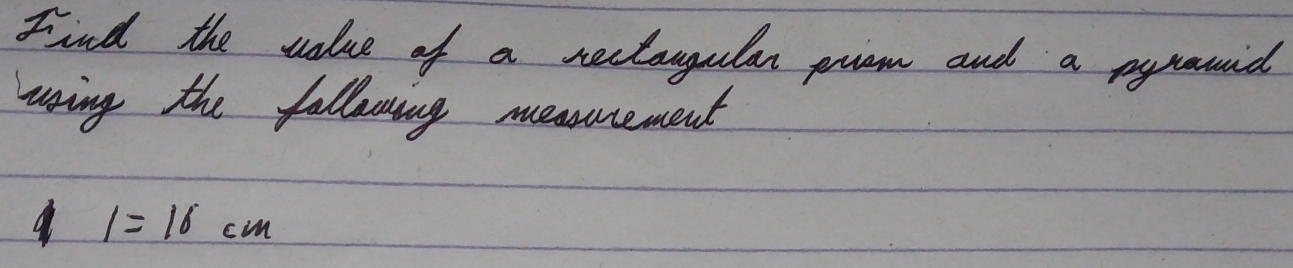 Find the value of a rectangular prism and a pyramid
using the following measurement
l = 16 cm